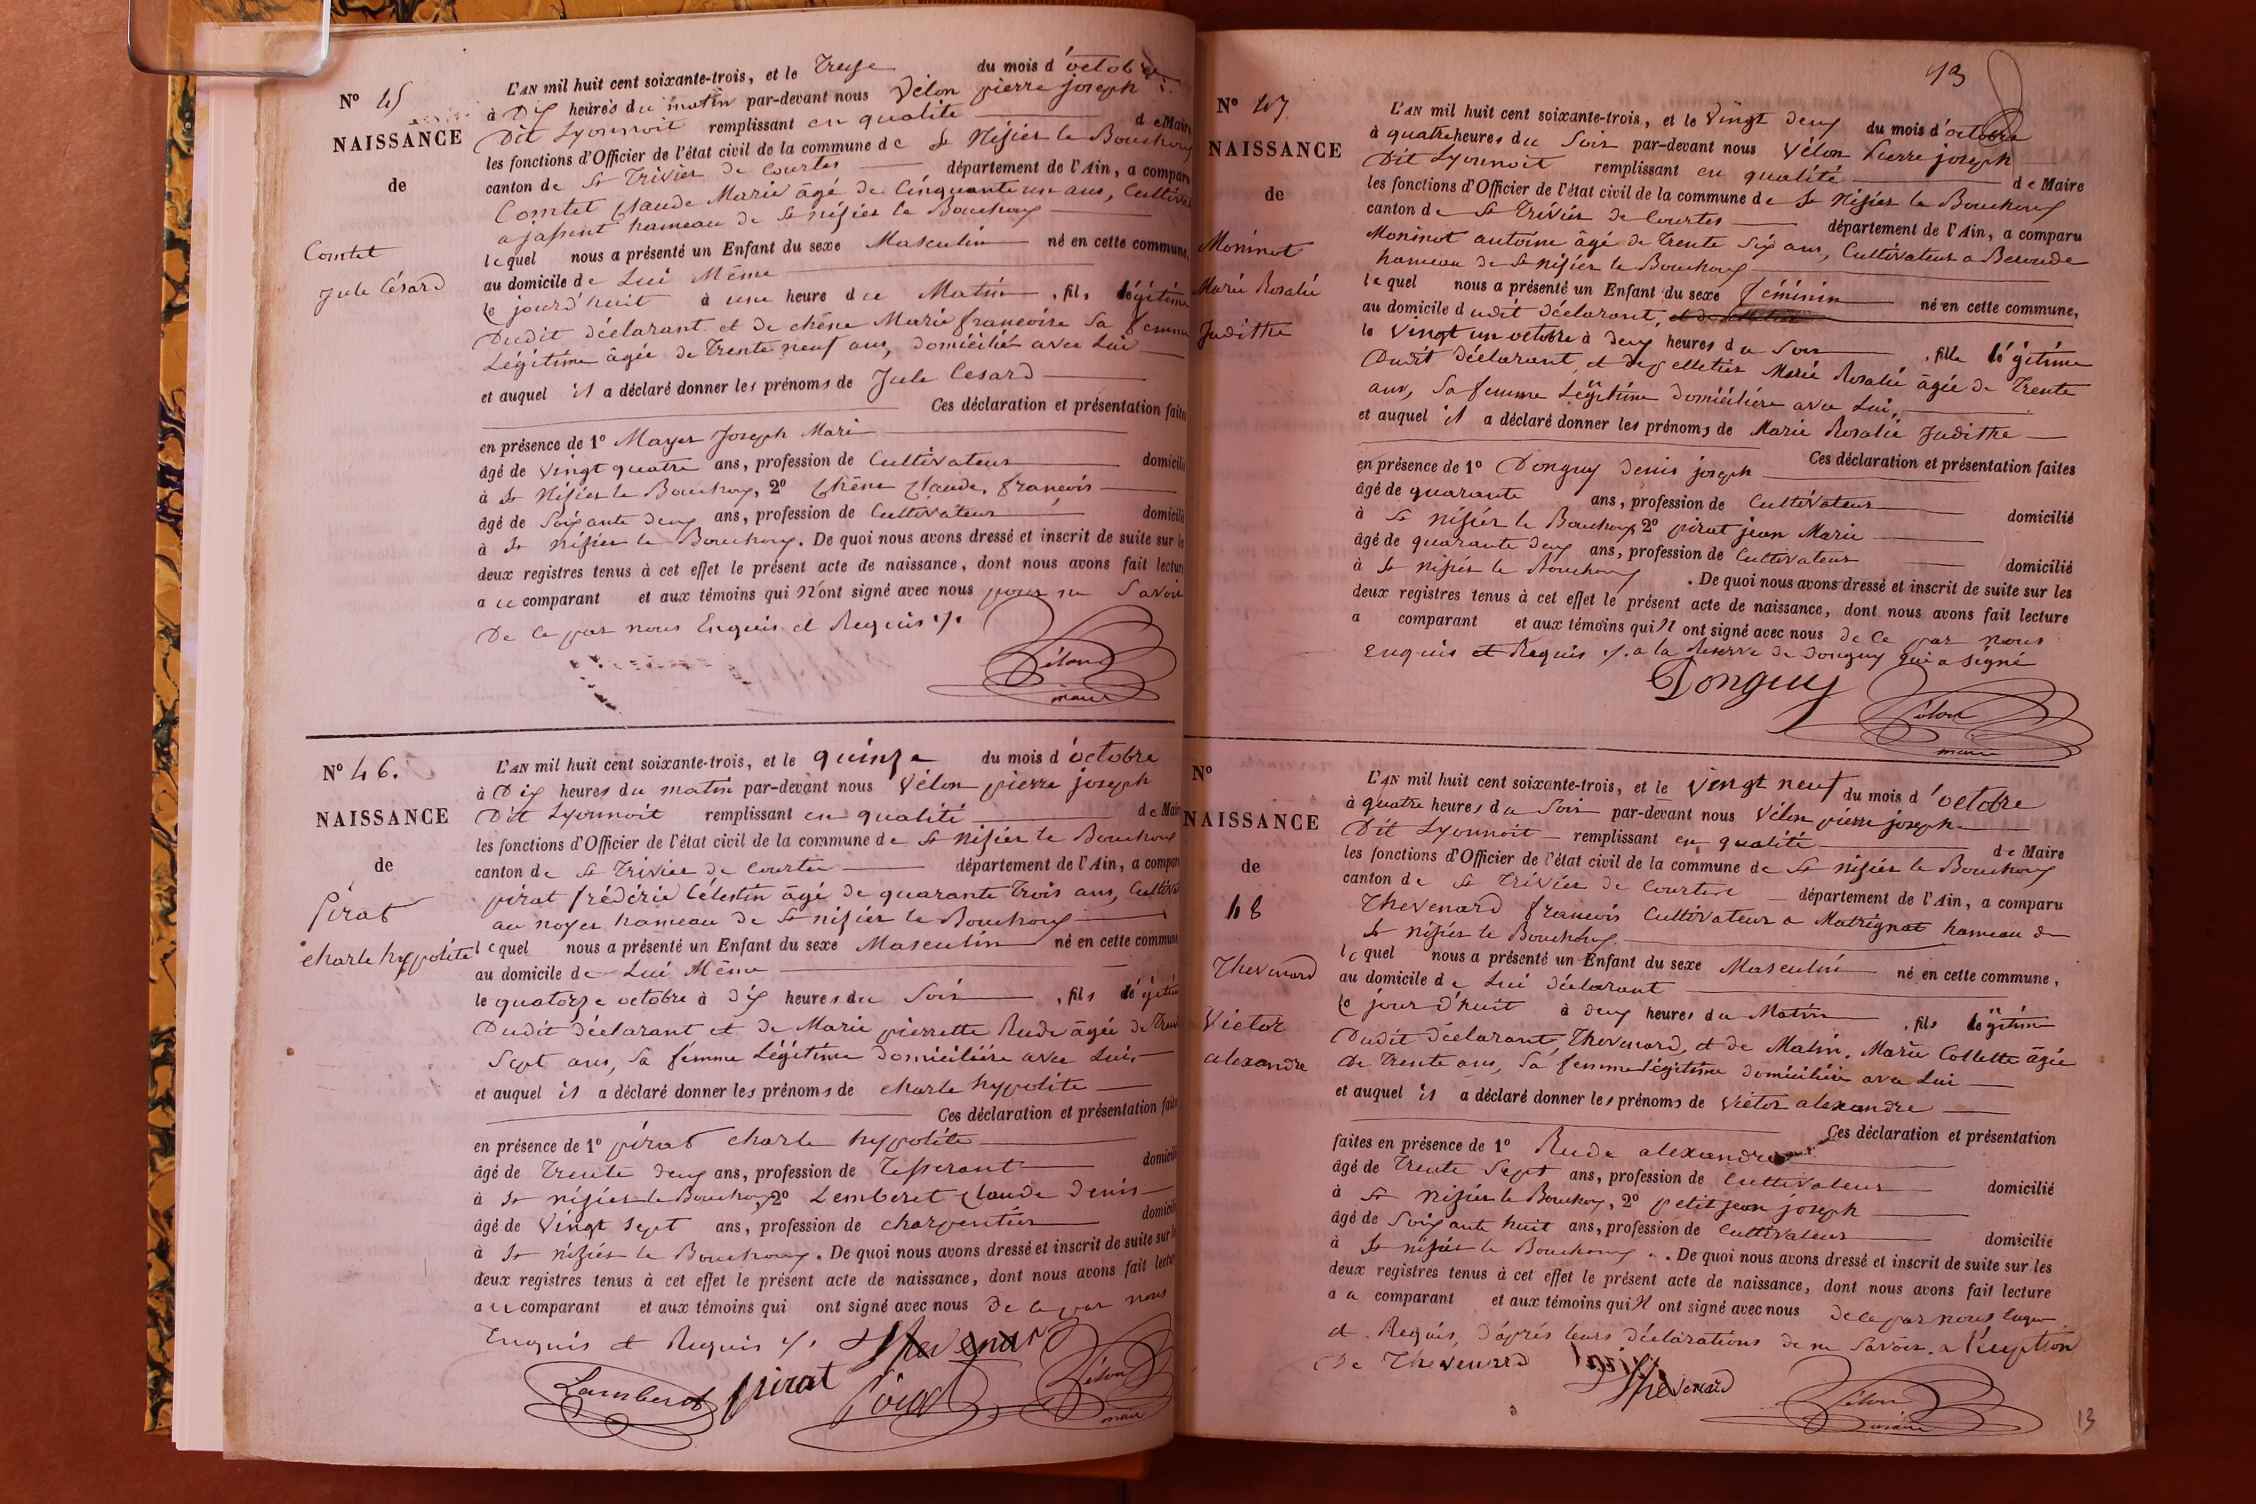 N° 45
NAISSANCE
de
Comtet
Jule César
L'AN mil huit cent soixante-trois, et le Treize du mois d'octobre
à Dix heures du matin par-devant nous Vélon pierre joseph
Dit Lyonnoit remplissant en qualité de Maire
les fonctions d'Officier de l'état civil de la commune de St Nizier le Bouchoux
canton de St Trivier de Courtes département de l'Ain, a comparu
Comtet Claude Marie âgé de Cinquante un ans, Cultivat
a jassent hameau de St nizier le Bouchoux
lequel nous a présenté un Enfant du sexe Masculin né en cette commune
au domicile de Lui Même
le jourd'huit à une heure du Matin , fils légitime
Dudit déclarant et de chêne Marie francoise Sa femme
Légitime âgée de Trente neuf ans, domiciliée avec Lui
et auquel il a déclaré donner les prénoms de Jule Cesard
Ces déclaration et présentation faites
en présence de 1° Mayer Joseph Marie
âgé de vingt quatre ans, profession de Cultivateur domicilié
à St Nizier le Bouchoux, 2° Chêne Claude, francois
âgé de Soixante deux ans, profession de Cultivateur domicilié
à St nizier le Bouchoux. De quoi nous avons dressé et inscrit de suite sur les
deux registres tenus à cet effet le présent acte de naissance, dont nous avons fait lecture
a ce comparant et aux témoins qui n'ont signé avec nous pour ne Savoir
De Ce par nous Enquis et Requis ./.
Vélon
maire
N° 46.
NAISSANCE
de
Pirat
charle hypolite
L'AN mil huit cent soixante-trois, et le quinze du mois d'octobre
à Dix heures du matin par-devant nous Vélon pierre joseph
Dit Lyonnoit remplissant en qualité de Mair
les fonctions d'Officier de l'état civil de la commune de St Nizier le Bouchoux
canton de St Trivier de Courtes département de l'Ain, a comparu
pirat frédéric Célestin âgé de quarante Trois ans, Cultiva
au noyer hameau de St nizier le Bouchoux
lequel nous a présenté un Enfant du sexe Masculin né en cette commune
au domicile de Lui Même
le quatorze octobre à dix heures du Soir , fils légitim
Dudit déclarant et de Marie pierrette Rude âgée de Trent
Sept ans, Sa femme Légitime domiciliée avec Lui
et auquel il a déclaré donner les prénoms de charle hypolite
Ces déclaration et présentation faites
en présence de 1° pirat charle hypolite
âgé de Trente deux ans, profession de Tisserant domicili
à St nizier le Bouchoux 2° Lemberet Claude Denis
âgé de Vingt Sept ans, profession de charpentier domicili
à St nizier le Bouchoux. De quoi nous avons dressé et inscrit de suite sur les
deux registres tenus à cet effet le présent acte de naissance, dont nous avons fait lecture
a ce comparant et aux témoins qui ont signé avec nous de ce par nous
Enquis et Requis ./. Thevenard
Lamberet pirat Pirat Vélon
maire
13
N° 47.
NAISSANCE
de
Moninot
Marie Rosalie
Judithe
L'AN mil huit cent soixante-trois, et le Vingt deux du mois d'octobre
à quatre heures du Soir par-devant nous Vélon Pierre joseph
Dit Lyonnoit remplissant en qualité de Maire
les fonctions d'Officier de l'état civil de la commune de St Nizier le Bouchoux
canton de St Trivier de Courtes département de l'Ain, a comparu
Moninot antoine âgé de Trente Six ans, Cultivateur a Beroude
hameau de St nizier le Bouchoux
lequel nous a présenté un Enfant du sexe féminin né en cette commune,
au domicile dudit déclarant,
le Vingt un octobre à deux heures du Soir , fille légitime
Dudit déclarant, et de pelletier Marie Rosalie âgée de Trente
ans, Sa femme Légitime domiciliée avec Lui,
et auquel il a déclaré donner les prénoms de Marie Rosalie Judithe
Ces déclaration et présentation faites
en présence de 1° Donguy denis joseph
âgé de quarante ans, profession de Cultivateur domicilié
à St nizier le Bouchoux, 2° pirat jean Marie
âgé de quarante deux ans, profession de Cultivateur domicilié
à St nizier le Bouchoux . De quoi nous avons dressé et inscrit de suite sur les
deux registres tenus à cet effet le présent acte de naissance, dont nous avons fait lecture
a comparant et aux témoins qui n ont signé avec nous de Ce par nous
Enquis et Requis ./. a la Reserve de donguy qui a signé
Donguy
Vélon
maire
N°
NAISSANCE
de
48
Thevenard
Victor
alexandre
L'AN mil huit cent soixante-trois, et le Vingt neuf du mois d'octobre
à quatre heures du Soir par-devant nous Vélon pierre joseph
Dit Lyonnoit remplissant en qualité de Maire
les fonctions d'Officier de l'état civil de la commune de St nizier le Bouchoux
canton de St Trivier de Courtes département de l'Ain, a comparu
Thevenard francois Cultivateur a Matrignat hameau de
St nizier le Bouchoux
lequel nous a présenté un Enfant du sexe Masculin né en cette commune,
au domicile de Lui déclarant
le jour d'huit à deux heures du Matin , fils légitime
Dudit déclarant Thevenard, et de Matin, Marie Collette âgée
de Trente ans, Sa femme légitime domiciliée avec Lui
et auquel il a déclaré donner les prénoms de Victor alexandre
Ces déclaration et présentation
faites en présence de 1° Rude alexandre
âgé de Trente Sept ans, profession de Cultivateur domicilié
à St Nizier le Bouchoux, 2° petit jean joseph
âgé de Soixante huit ans, profession de Cultivateur domicilié
à St nizier le Bouchoux . De quoi nous avons dressé et inscrit de suite sur les
deux registres tenus à cet effet le présent acte de naissance, dont nous avons fait lecture
a ce comparant et aux témoins qui n ont signé avec nous de ce par nous Enquis
et Requis, d'après leurs déclarations de ne Savoir. a l'éxeption
De Thevenard
Thevenard
Vélon
maire
13